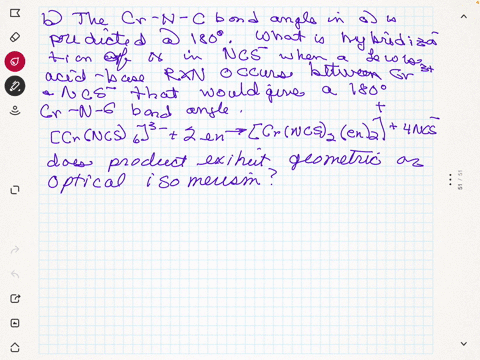 b) The Cr-N-C bond angle in a) is
predicted @ 180°. What is hybridiza
tion of N in NCS⁻ when a Lewis
acid-base RXN occurs between Cr³⁺
& NCS⁻ that would give a 180°
Cr-N-C bond angle.
[Cr(NCS)₆]³⁻ + 2 en → [Cr(NCS)₂(en)₂]⁺ + 4NCS⁻
does product exihuit geometric or
optical isomerism?
51 / 51